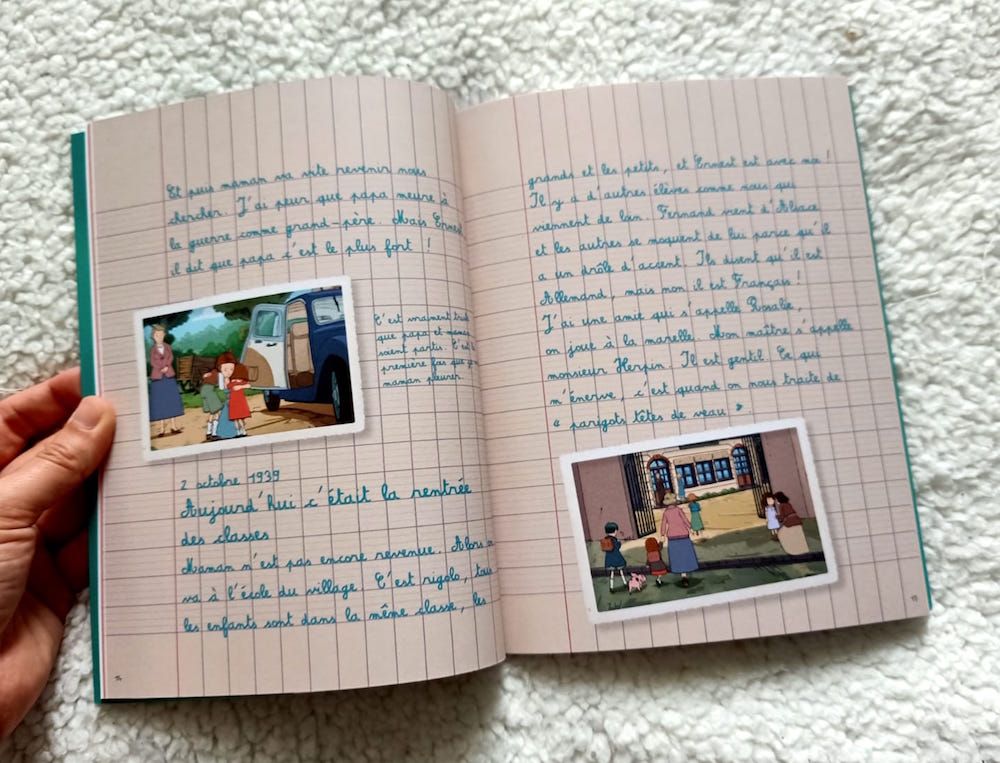 Et puis maman va vite revenir nous
chercher. J'ai peur que papa meure à
la guerre comme grand-père. Mais Ernest
il dit que papa c'est le plus fort !
C'est vraiment
que papa et maman
soient partis. C'est la
première fois que je
maman pleurer.
2 octobre 1939
Aujourd'hui c'était la rentrée
des classes
Maman n'est pas encore revenue. Alors on
va à l'école du village. C'est rigolo, tous
les enfants sont dans la même classe, les
14
grands et les petits, et Ernest est avec moi !
Il y a d'autres élèves comme nous qui
viennent de loin. Fernand vient d'Alsace
et les autres se moquent de lui parce qu'il
a un drôle d'accent. Ils disent qu'il est
Allemand, mais non il est Français !
J'ai une amie qui s'appelle Rosalie,
on joue à la marelle. Mon maître s'appelle
monsieur Herpin. Il est gentil. Ce qui
m'énerve, c'est quand on nous traite de
« parigots têtes de veau ».
15